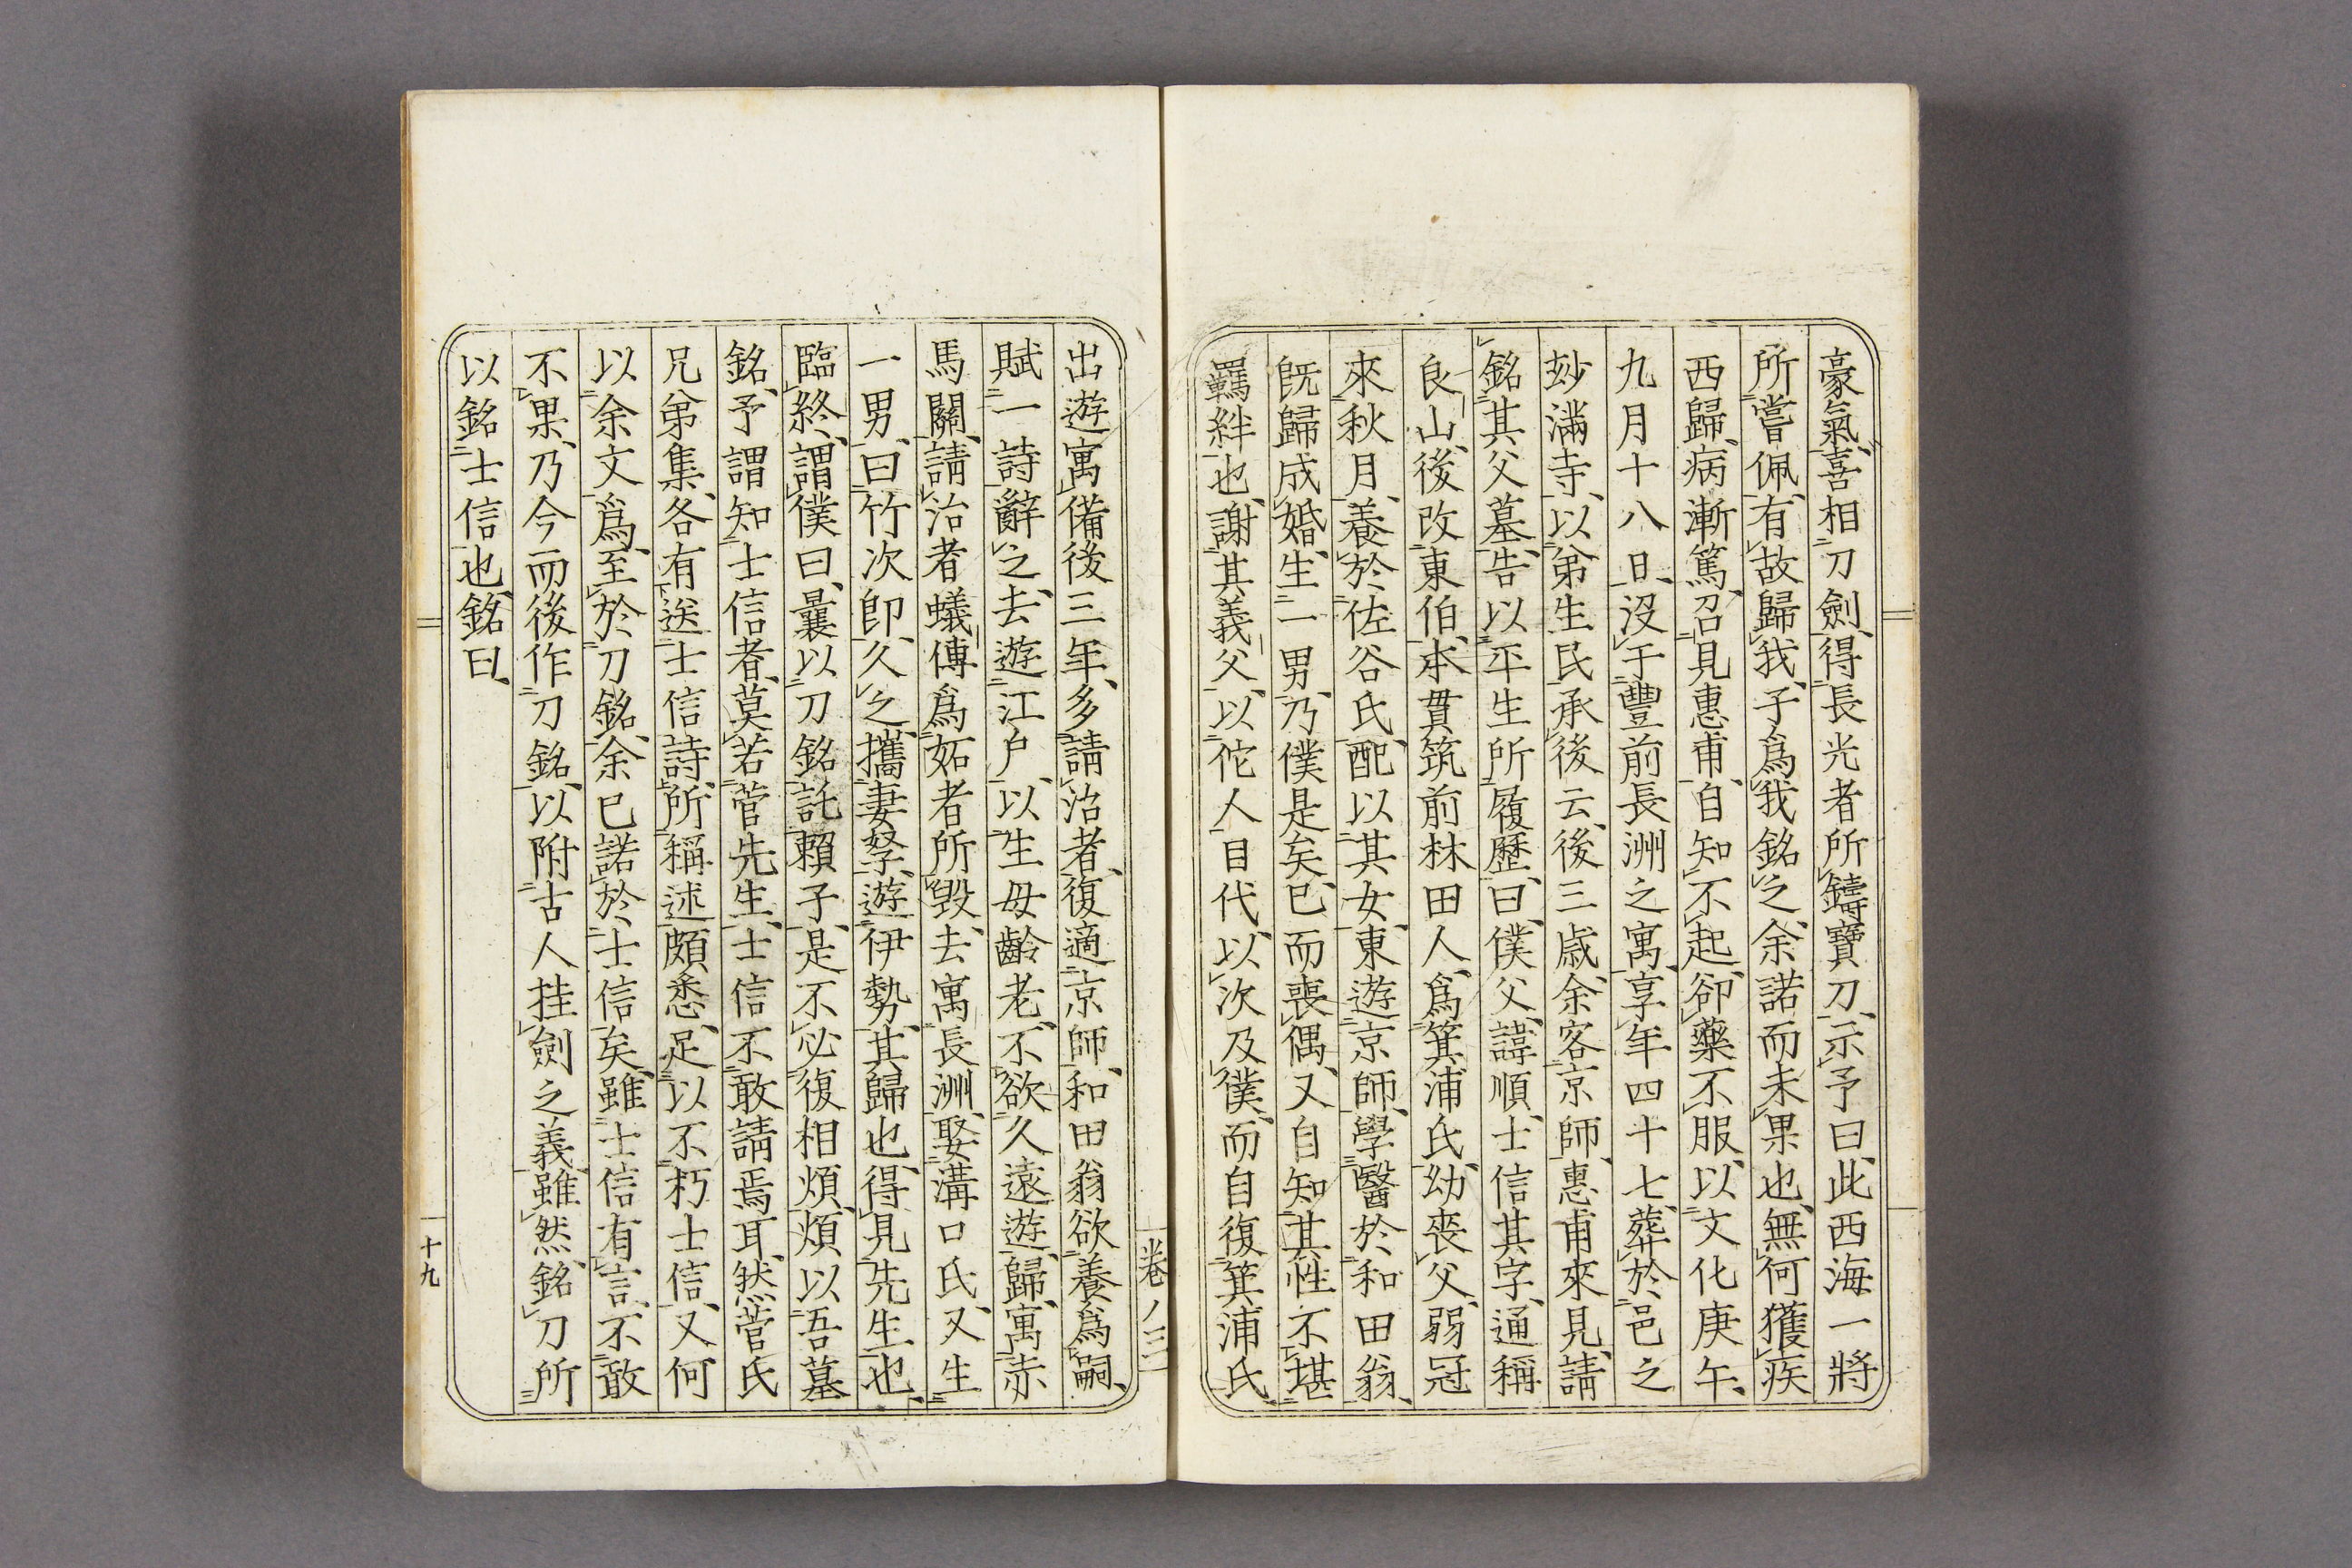 豪氣、喜相刀劍、得長光者所鑄寶刀、示予曰、此西海一將
所嘗佩、有故歸我、子爲我銘之、余諾而未果也、無何獲疾
西歸、病漸篤、召見惠甫、自知不起、卻藥不服、以文化庚午、
九月十八日、沒于豐前長洲之寓、享年四十七、葬於邑之
玅滿寺、以弟生民承後云、後三歲、余客京師、惠甫來見、請
銘其父墓、告以平生所履歷、曰、僕父、諱順、士信其字、通稱
良山、後改東伯、本貫筑前林田人、爲箕浦氏、幼喪父、弱冠
來秋月、養於佐谷氏、配以其女、東遊京師、學醫於和田翁、
旣歸成婚、生一男、乃僕是矣、已而喪偶、又自知其性不堪
羈絆也、謝其義父、以佗人自代、以次及僕、而自復箕浦氏、
出遊寓備後三年、多請治者、復適京師、和田翁欲養爲嗣、
賦一詩辭之去、遊江戶、以生母齡老、不欲久遠遊、歸寓赤
馬關、請治者蟻傅、爲妬者所毀、去寓長洲、娶溝口氏、又生
一男、曰竹次卽、久之、攜妻孥、遊伊勢、其歸也、得見先生也、
臨終、謂僕曰、曩以刀銘託賴子、是不必復相煩、煩以吾墓
銘、予謂知士信者、莫若菅先生、士信不敢請焉耳、然菅氏
兄弟集、各有送士信詩、所稱述頗悉、足以不朽士信、又何
以余文爲、至於刀銘、余已諾於士信矣、雖士信有言、不敢
不果、乃今而後作刀銘、以附古人挂劍之義、雖然、銘刀所
以銘士信也、銘曰、
卷ノ三
十九